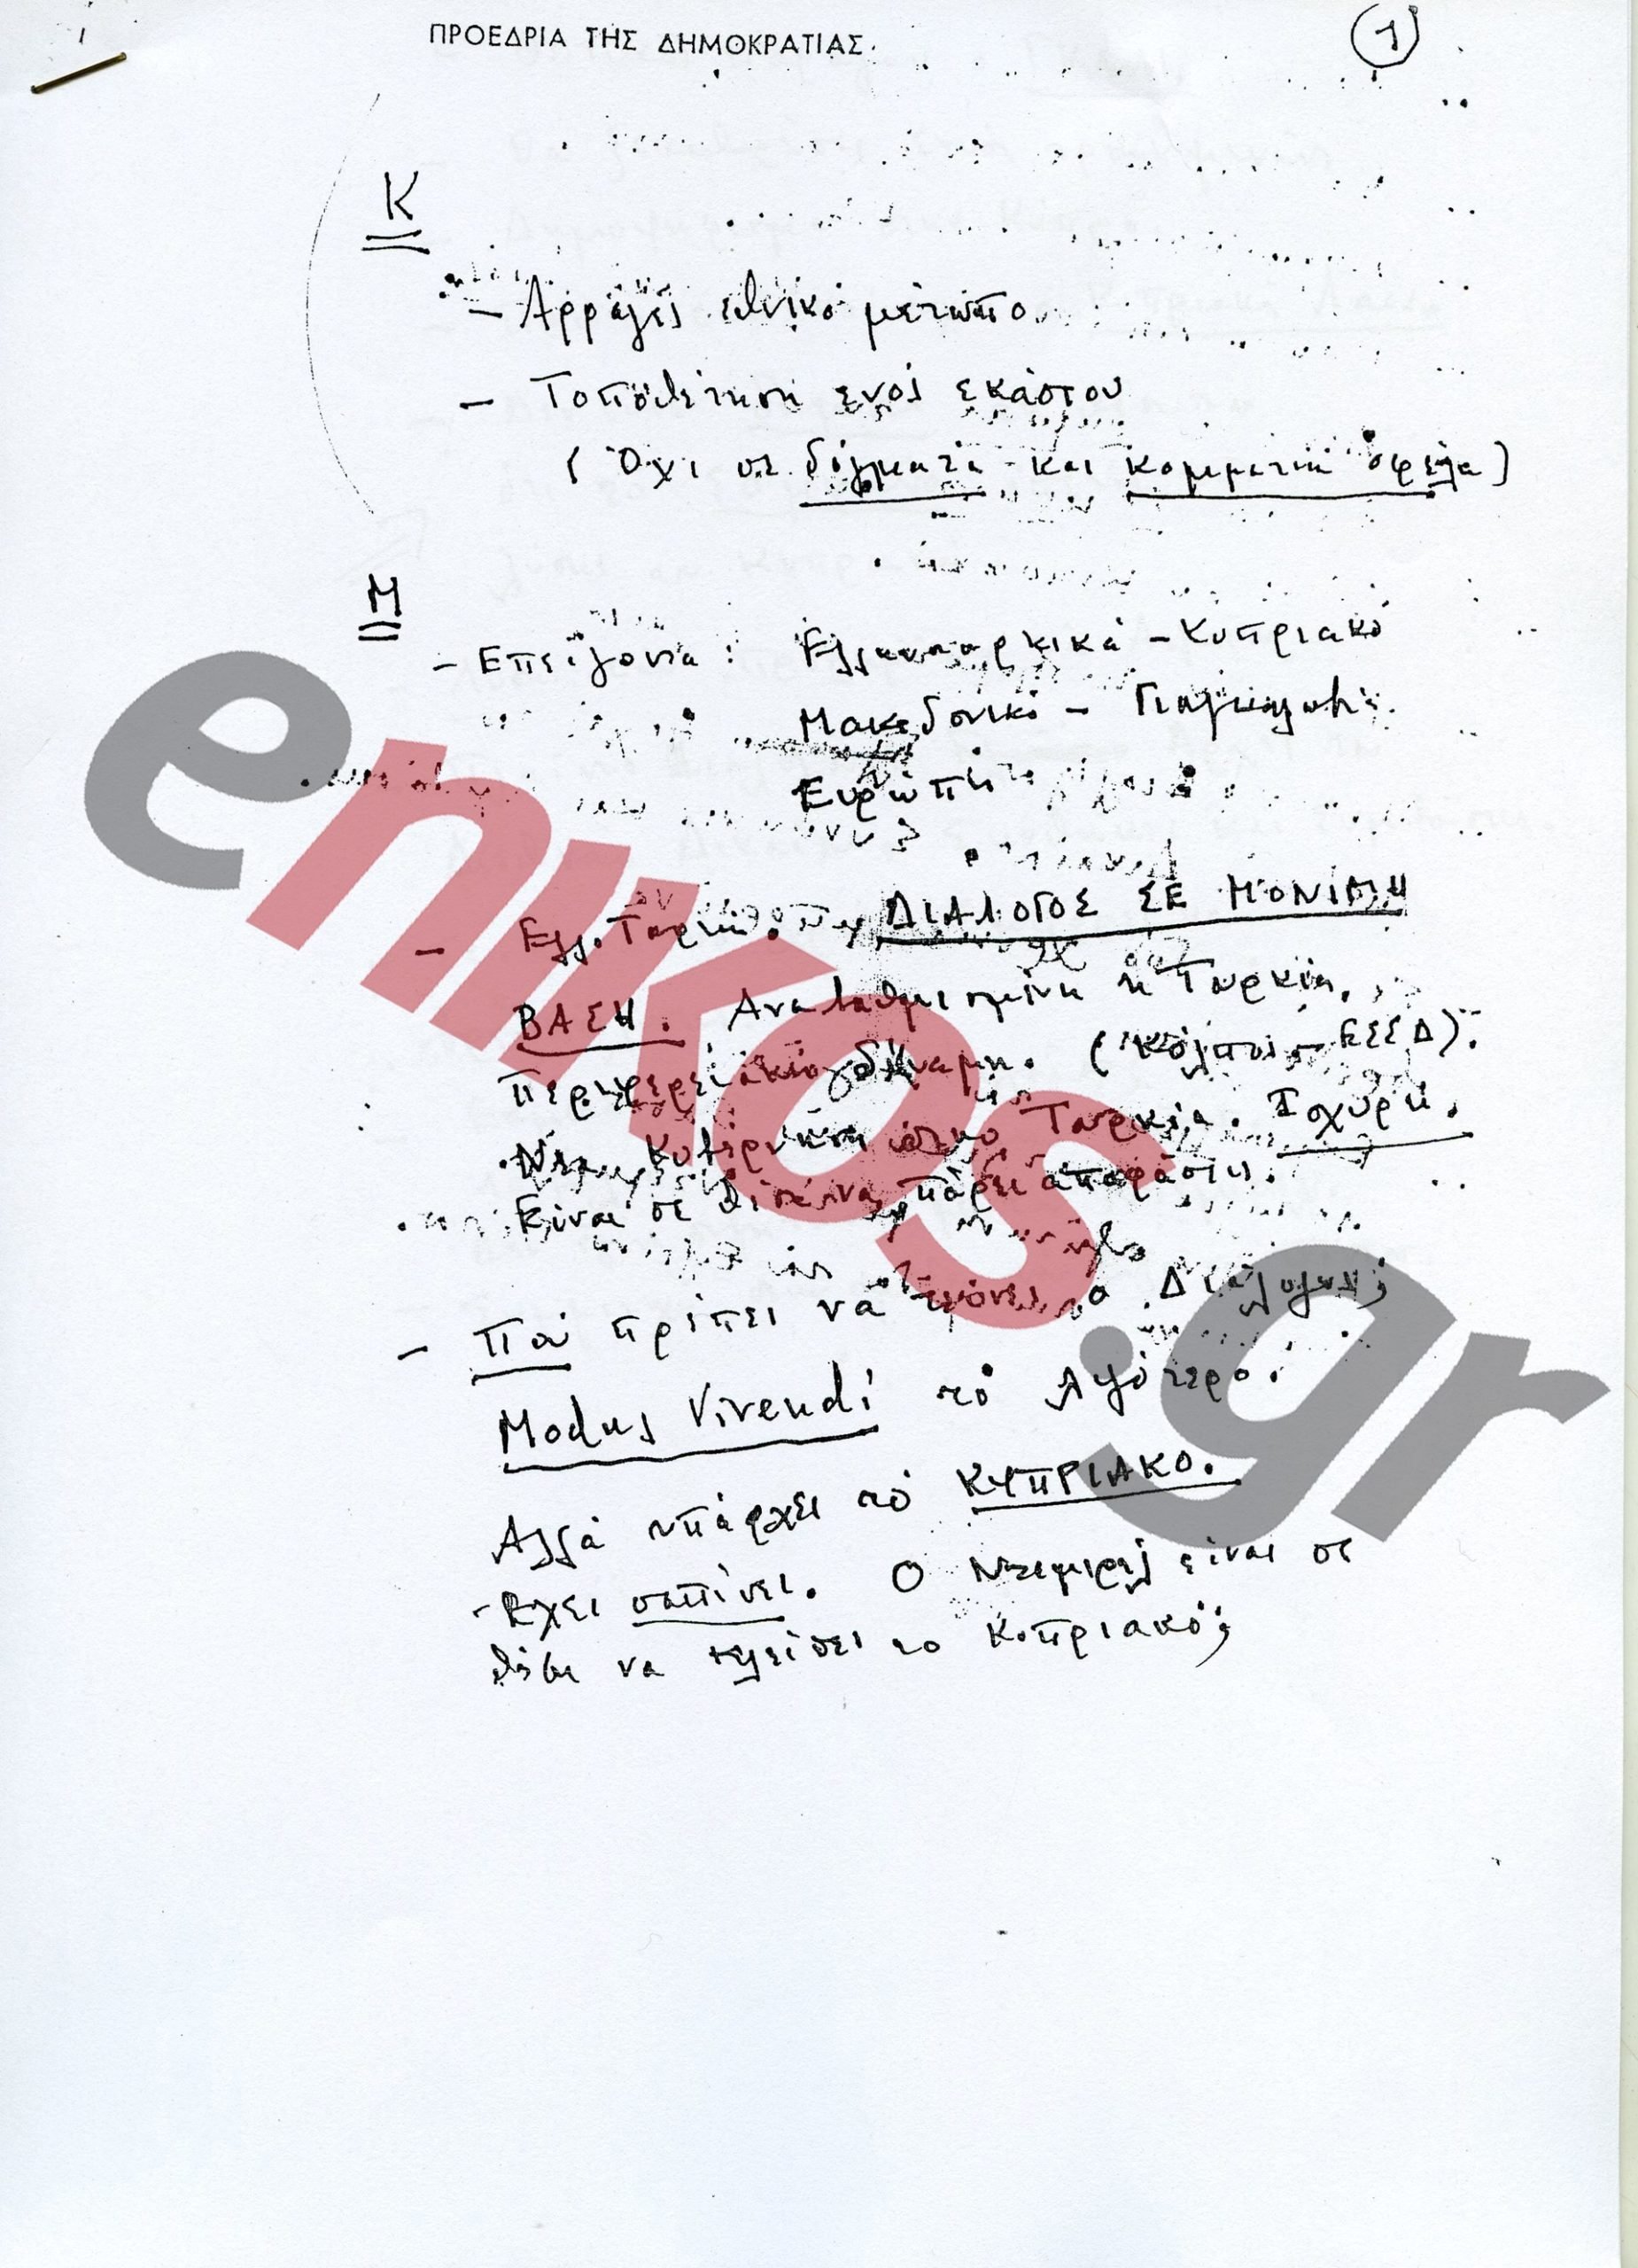 ΠΡΟΕΔΡΙΑ ΤΗΣ ΔΗΜΟΚΡΑΤΙΑΣ
1
Κ
- Αρραγές εθνικό μέτωπο
- Τοποθέτηση ενός εκάστου
(Όχι σε δόγματα και κομματικά οφέλη)
Μ
- Επείγοντα: Ελληνοτουρκικά - Κυπριακό
Μακεδονικό - Γιουγκοσλαβία.
Ευρώπη
- Ελλ. Τουρκία. ΔΙΑΛΟΓΟΣ ΣΕ ΜΟΝΙΜΗ
ΒΑΣΗ. Αναβαθμισμένη η Τουρκία.
Περιφερειακή δύναμη. (Κόλπος - ΕΣΣΔ).
Νέα Κυβέρνηση στην Τουρκία. Ισχυρή.
Είναι σε θέση να πάρει αποφάσεις.
- Πού πρέπει να ο Διάλογος;
Modus Vivendi τό λιγότερο.
Αλλά υπάρχει τό ΚΥΠΡΙΑΚΟ.
- Έχει σαπίσει. Ο Ντεμιρέλ είναι σε
θέση να κλείσει το Κυπριακό;
enikos.gr